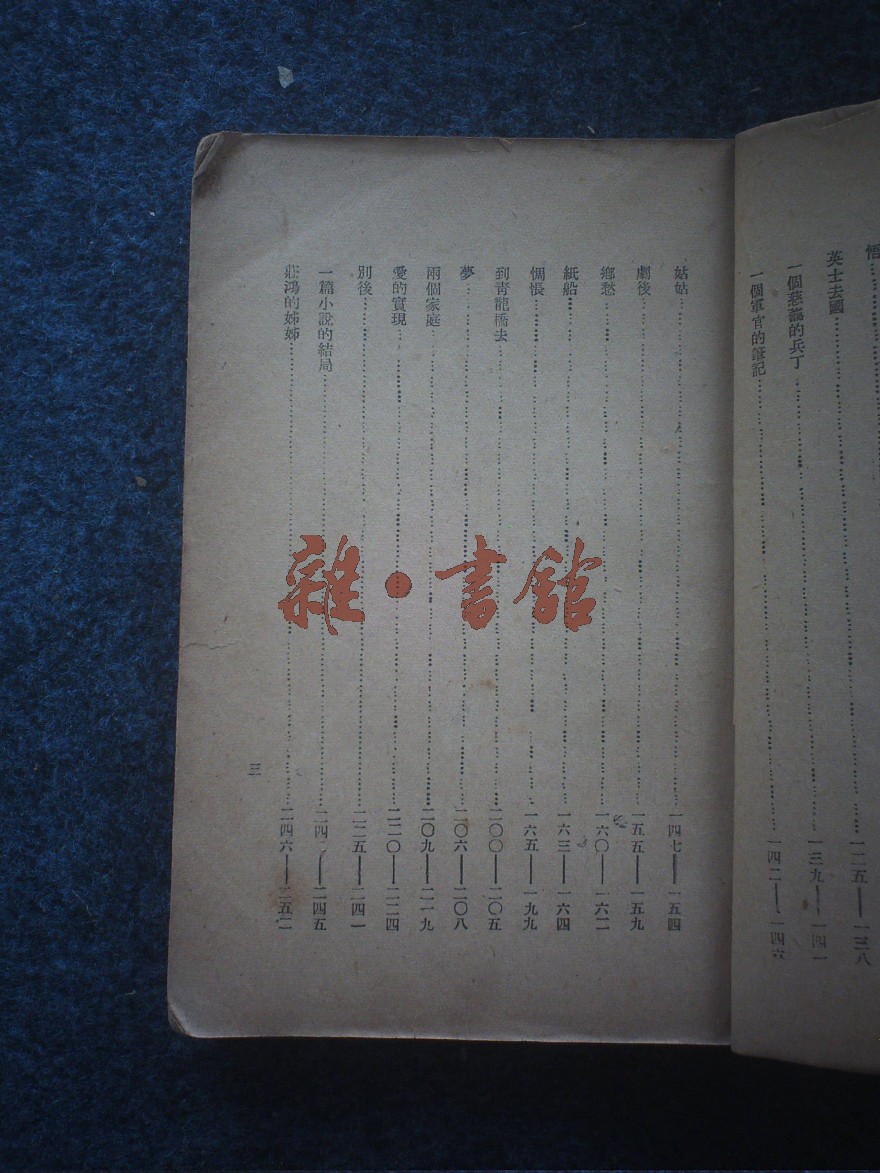 悟……一二五——一三八
英士去國
一個慈藹的兵丁……一三九——一四一
一個軍官的筆記……一四二——一四六
姑姑……一四七——一五四
劇後……一五五——一五九
鄉愁……一六〇——一六二
紙船……一六三——一六四
惆悵……一六五——一九九
到青龍橋去……二〇〇——二〇五
夢……二〇六——二〇八
兩個家庭……二〇九——二一九
愛的實現……二二〇——二二四
別後……二二五——二四一
一篇小說的結局……二四二——二四五
莊鴻的姊姊……二四六——二五二
三
雜·書館